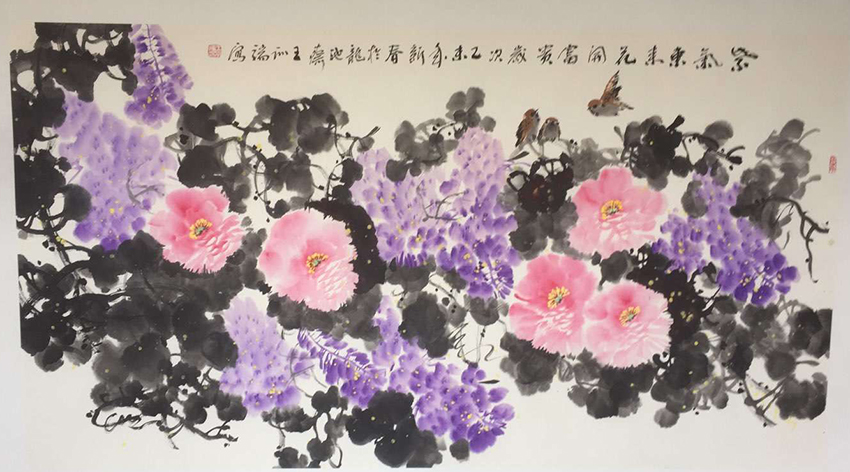 紫氣東來花開富貴歲次乙未年新春於龍池齋王訓瑞寫